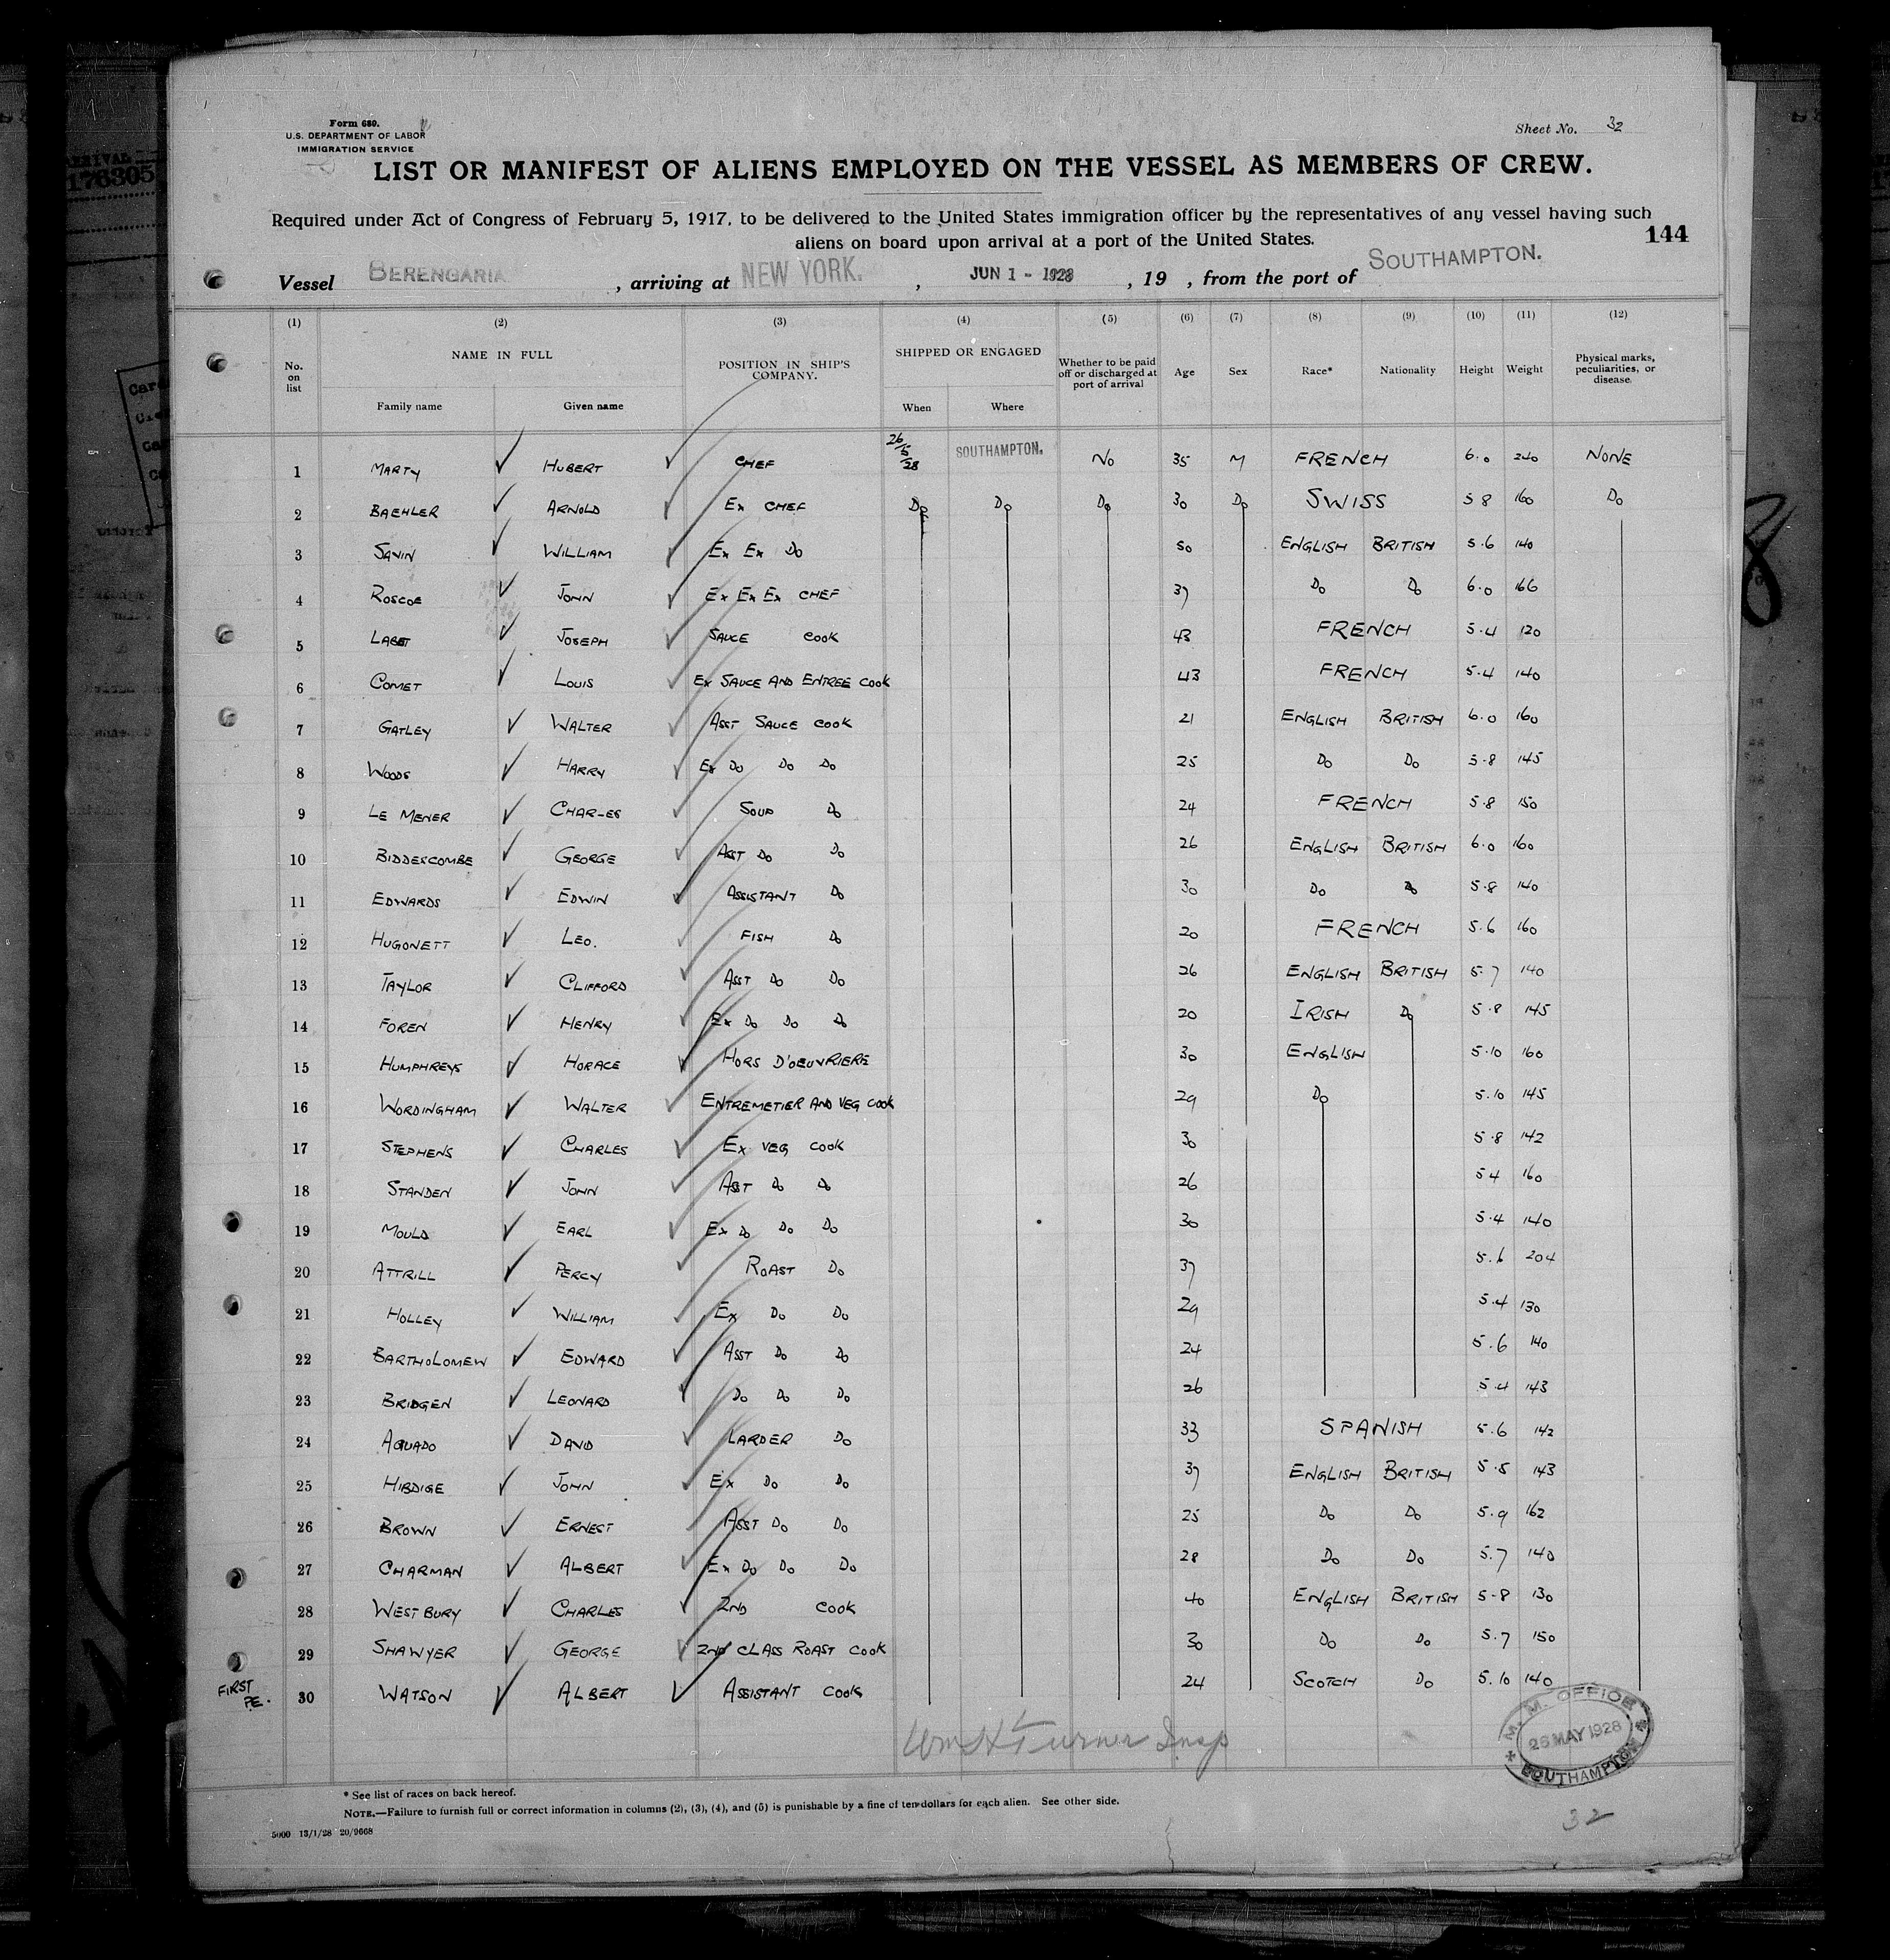 Form 680.
U.S. DEPARTMENT OF LABOR
IMMIGRATION SERVICE
Sheet No. 32
LIST OR MANIFEST OF ALIENS EMPLOYED ON THE VESSEL AS MEMBERS OF CREW.
Required under Act of Congress of February 5, 1917, to be delivered to the United States immigration officer by the representatives of any vessel having such
aliens on board upon arrival at a port of the United States.
144
Vessel BERENGARIA , arriving at NEW YORK. , JUN 1 - 1928 , 19 , from the port of SOUTHAMPTON.
(1) (2) (3) (4) (5) (6) (7) (8) (9) (10) (11) (12)
No. on list NAME IN FULL Family name Given name POSITION IN SHIP'S COMPANY. SHIPPED OR ENGAGED When Where Whether to be paid off or discharged at port of arrival Age Sex Race* Nationality Height Weight Physical marks, peculiarities, or disease.
1 MARTY HUBERT CHEF 26/5/28 SOUTHAMPTON. NO 35 M FRENCH 6.0 240 NONE
2 BAEHLER ARNOLD EX CHEF DO DO DO 30 DO SWISS 5 8 160 DO
3 SAVIN WILLIAM EX EX DO 50 ENGLISH BRITISH 5.6 140
4 ROSCOE JOHN EX EX EX CHEF 37 DO DO 6.0 166
5 JOSEPH SAUCE COOK 43 FRENCH 5.4 120
6 COMET LOUIS EX SAUCE AND ENTREE COOK 43 FRENCH 5.4 140
7 GATLEY WALTER ASST SAUCE COOK 21 ENGLISH BRITISH 6.0 160
8 WOODS HARRY EX DO DO DO 25 DO DO 5.8 145
9 LE MENER CHARLES SOUP DO 24 FRENCH 5.8 150
10 BIDDESCOMBE GEORGE ASST DO DO 26 ENGLISH BRITISH 6.0 160
11 EDWARDS EDWIN ASSISTANT DO 30 DO DO 5.8 140
12 HUGONETT LEO. FISH DO 20 FRENCH 5.6 160
13 TAYLOR CLIFFORD ASST DO DO 26 ENGLISH BRITISH 5.7 140
14 FOREN HENRY EX DO DO DO 20 IRISH DO 5.8 145
15 HUMPHREYS HORACE HORS D'OEUVRIERE 30 ENGLISH 5.10 160
16 WORDINGHAM WALTER ENTREMETIER AND VEG COOK 29 DO 5.10 145
17 STEPHENS CHARLES EX VEG COOK 30 5.8 142
18 STANDEN JOHN ASST DO DO 26 5 4 160
19 MOULD EARL EX DO DO DO 30 5.4 140
20 ATTRILL PERCY ROAST DO 37 5.6 204
21 HOLLEY WILLIAM EX DO DO 29 5.4 130
22 BARTHOLOMEW EDWARD ASST DO DO 24 5.6 140
23 BRIDGEN LEONARD DO DO DO 26 5.4 143
24 AGUADO DAVID LARDER DO 33 SPANISH 5.6 142
25 HIBDIGE JOHN EX DO DO 37 ENGLISH BRITISH 5.5 143
26 BROWN ERNEST ASST DO DO 25 DO DO 5.9 162
27 CHARMAN ALBERT EX DO DO DO 28 DO DO 5.7 140
28 WESTBURY CHARLES 2ND COOK 40 ENGLISH BRITISH 5-8 130
29 SHAWYER GEORGE 2ND CLASS ROAST COOK 30 DO DO 5.7 150
FIRST PE. 30 WATSON ALBERT ASSISTANT COOK 24 SCOTCH DO 5.10 140
Wm H Turner Insp
M. M. OFFICE
26 MAY 1928
SOUTHAMPTON
* See list of races on back hereof.
NOTE.—Failure to furnish full or correct information in columns (2), (3), (4), and (5) is punishable by a fine of ten dollars for each alien. See other side.
5000 13/1/28 20/9668
32
176305